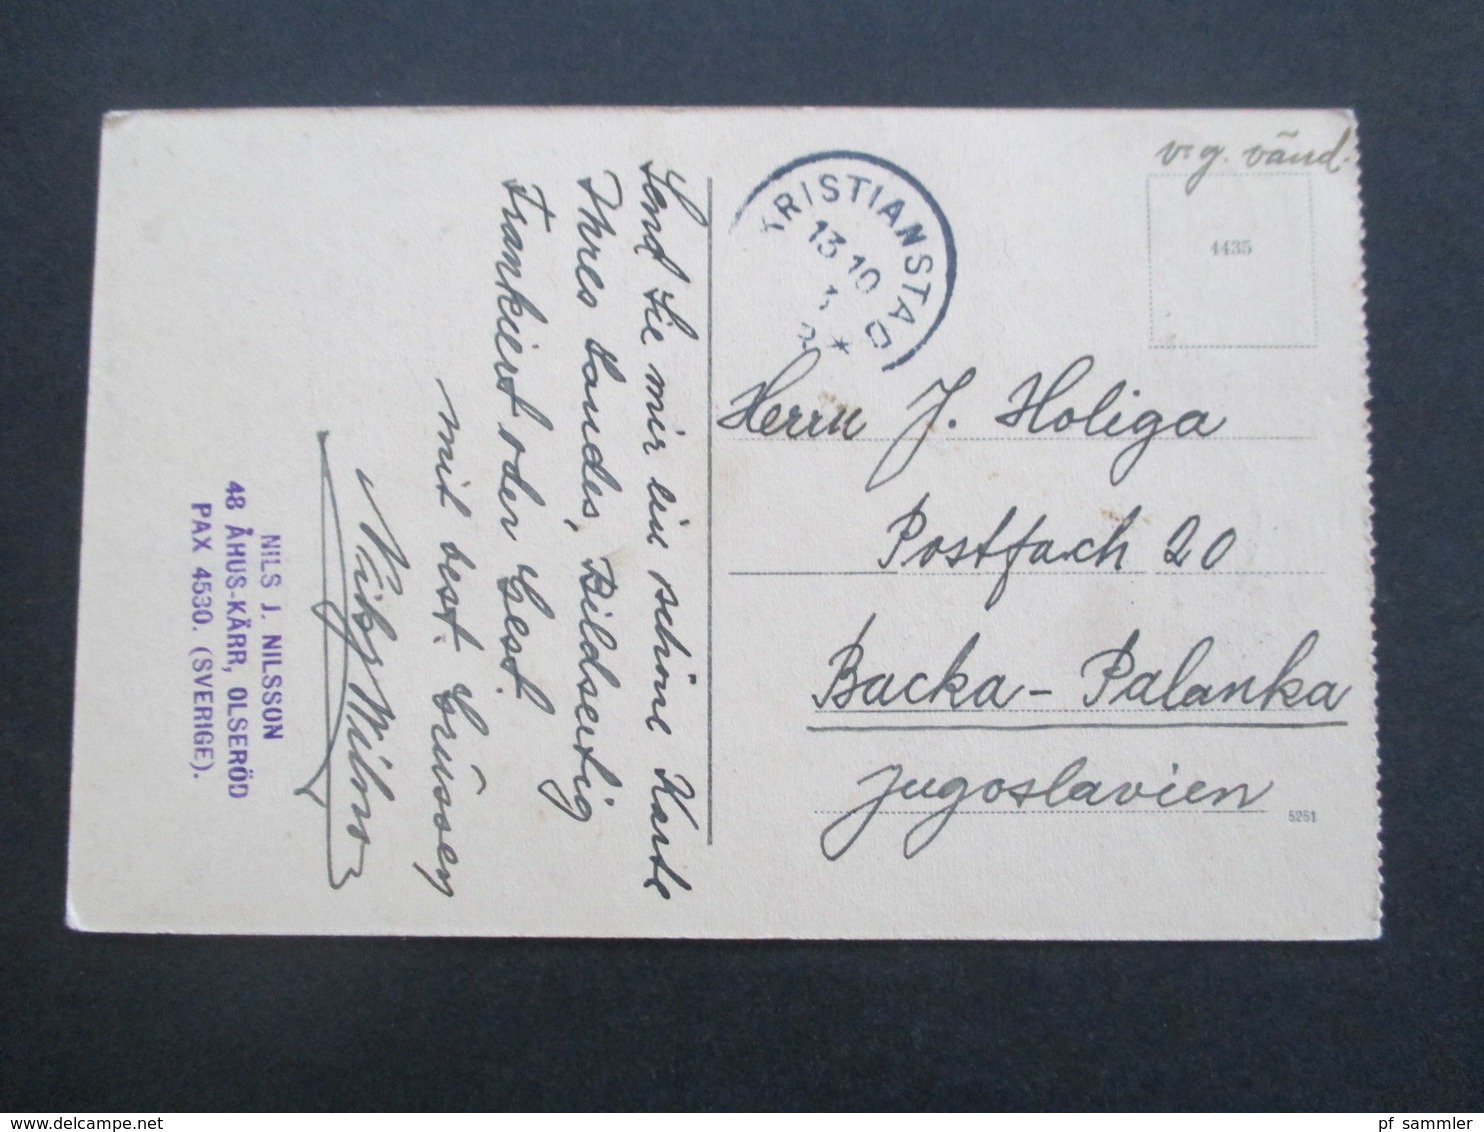 v. g. vänd.
4435
KRISTIANSTAD
13 10
Herrn J. Holiga
Postfach 20
Backa - Palanka
Jugoslavien
5251
Send Sie mir ein schöne Karte
Ihres Landes, Bildseitig
Frankiert oder Gest.
mit best. Grüssen
Nils J. Nilsson
NILS J. NILSSON
48 ÅHUS-KÄRR, OLSERÖD
PAX 4530. (SVERIGE).
pf_sammler
delcampe.net